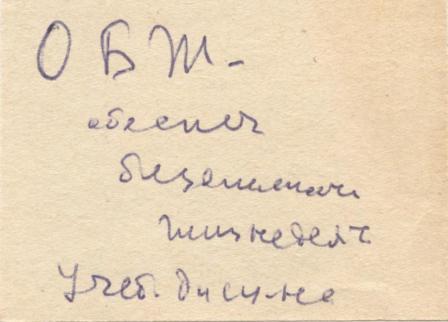 ОБЖ -
обеспеч
безопасности
жизнедеят
учеб. дисц-на